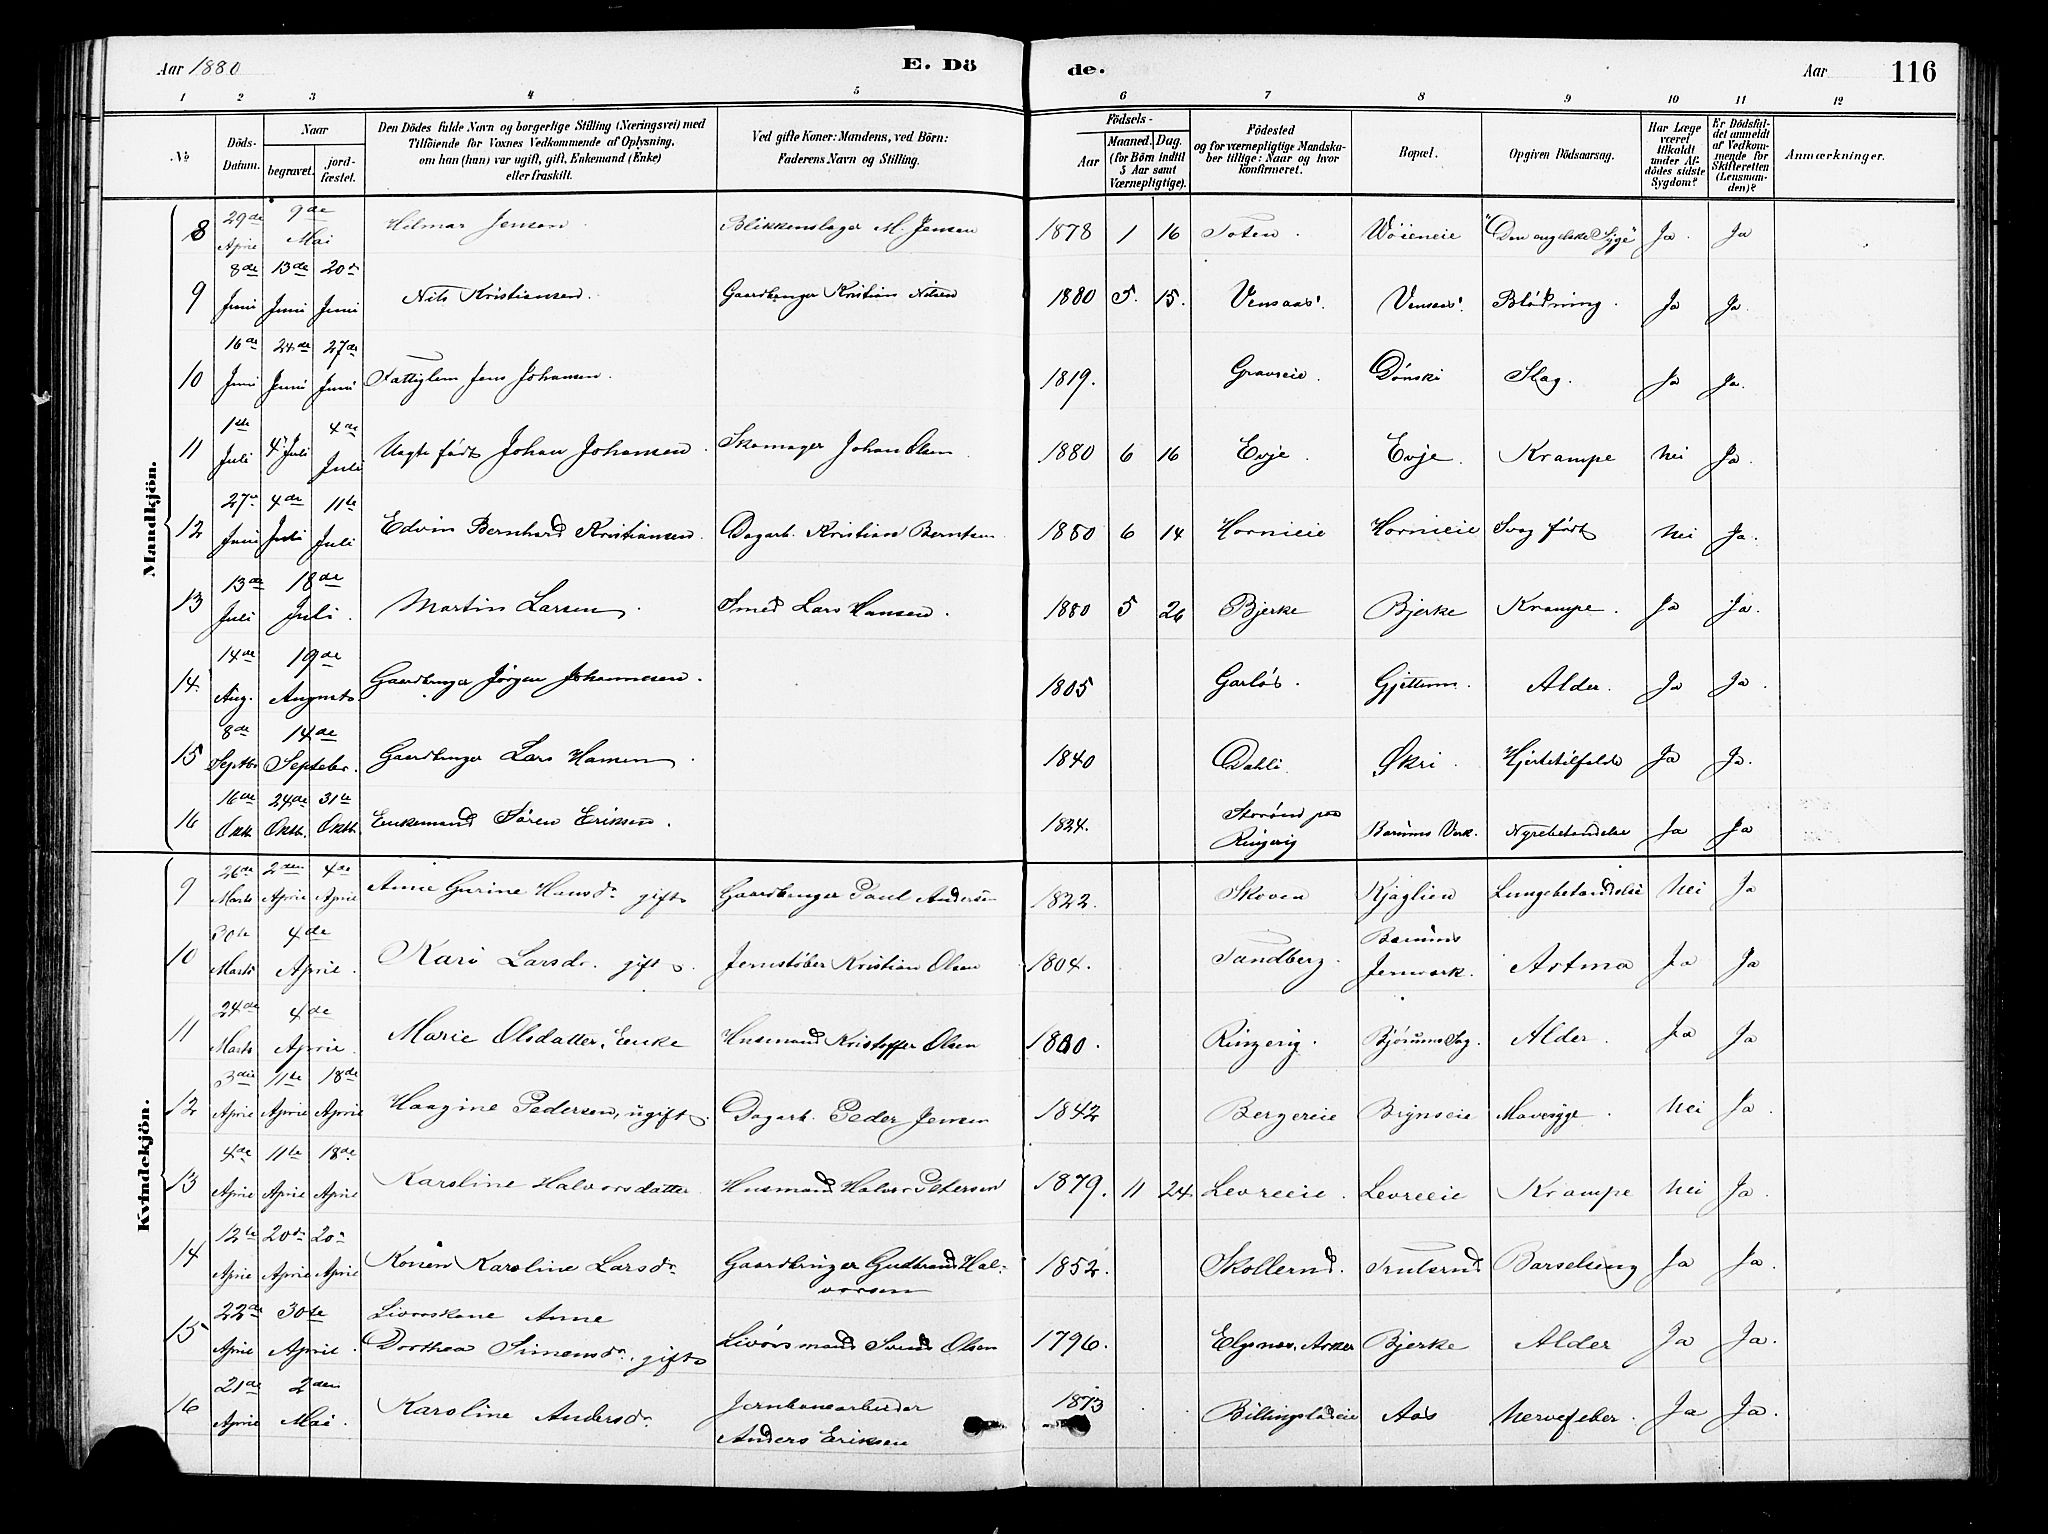 Aar 1880 E. Dö de. Aar 116
1 2 3 4 5 6 7 8 9 10 11 12
No. Döds-Datum. Naar begravet. jordfæstet. Den Dödes fulde Navn og borgerlige Stilling (Næringsvei) med Tilföiende for Voxnes Vedkommende af Oplysning, om han (hun) var ugift, gift, Enkemand (Enke) eller fraskilt. Ved gifte Koner: Mandens, ved Börn: Faderens Navn og Stilling. Födsels- Aar Maaned. Dag. (for Börn indtil 5 Aar samt Værnepligtige). Födested og for værnepligtige Mandskaber tillige: Naar og hvor konfirmeret. Bopæl. Opgiven Dödsaarsag. Har Læge været tilkaldt under Afdödes sidste Sygdom? Er Dödsfaldet anmeldt af Vedkommende for Skifteretten (Lensmanden)? Anmærkninger.
Mandkjön.
8 29de April 9de Mai Hilmar Jensen. Blikkenslager M. Jensen 1878 1 16 Toten. Wöieneie "Den engelske Syge" Ja. Ja
9 8de Juni 13de Juni 20de Juni Nils Kristiansen. Gaardbruger Kristian Nilsen 1880 5. 15. Vensaas. Vensaas. Blödning. Ja Ja.
10 16de Juni 24de Juni 27de Juni Fattiglem Jens Johansen. 1819. Gravseie. Dönski Slag. Ja Ja.
11 1ste Juli 4. Juli 4de Juli Uægte födt Johan Johansen. Skomager Johan Olsen 1880 6 16 Evje. Evje. Krampe Nei Ja.
12 27de Juni 4de Juli 11te Juli Edvin Bernhard Kristiansen. Dagarb. Kristian Berntsen 1880 6 14 Hornieie Hornieie Svag födt Nei Ja.
13 13de Juli 18de Juli. Martin Larsen. Smed Lars Hansen. 1880 5 26 Bjerke Bjerke Krampe. Ja Ja.
14. 14de Aug. 19de August Gaardbruger Jörgen Johannesen. 1805 Garlös. Gjettum. Alder. Ja Ja.
15 8de Septbr 14de Septebr. Gaardbruger Lars Hansen. 1840 Dahli. Økri. Hjertetilfælde Ja Ja.
16 16de Oktb. 24de Oktb. 31te Oktb. Enkemand Sören Eriksen. 1824. Storönd paa Ringerig Bærums Verk. Nyrebetændelse Ja Ja
Kvindekjön.
9 26de Marts 2den April 4de April Anne Gurine Hansdr gift Gaardbruger Paul Andersen 1822. Skoven Kjaglien Lungebetændelse Nei Ja
10 30te Marts 4de April. Kari Larsdr. gift. Jernstöber Kristian Olsen 1804. Sandberg. Bærums Jernværk. Astma Ja Ja
11 24de Marts 4de April. Marie Olsdatter, Enke Husmand Kristoffer Olsen 1800. Ringerig. Bjørums Sag. Alder. Ja Ja
12 3die April 11te April 18de April Haagine Pedersen, ugift. Dagarb. Peder Jensen 1842 Bergereie Brynseie Mavesyge. Nei Ja.
13 4de April 11te April 18de April Karoline Halvorsdatter Husmand Halvor Petersen 1879. 11 24 Levreeie. Levreeie Krampe Nei Ja.
14 12te April 20de April 20de April Konen Karoline Larsdr. Gaardbruger Gudbrand Halvorsen 1852. Skollerud. Trulsrud Barselseng Ja Ja.
15 22de April 30te April. Livorskone Anne Dorthea Simensdr. gift Livörsmand Svend Olsen 1796. Elgsnes. Asker Bjerke Alder Ja Ja.
16 21de April 2den Mai. Karoline Andersdr. Jernbanearbeider Anders Eriksen 1873 Billingstadeie Aas Nervefeber. Ja Ja.